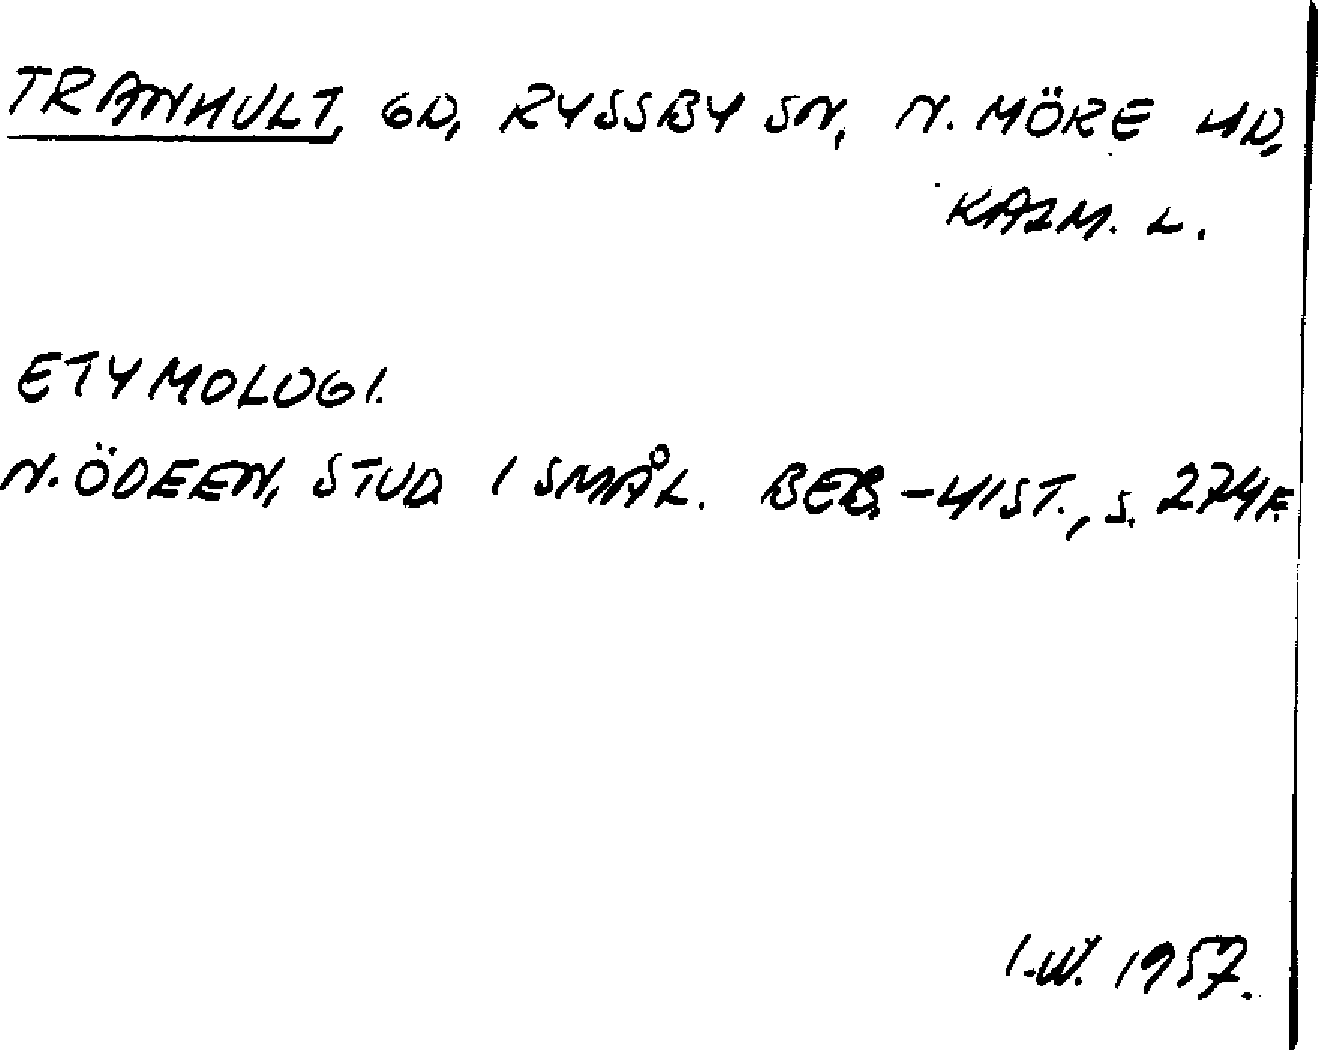 TRANHULT, GD, RYSSBY SN, N. MÖRE HD,
KALM. L.
ETYMOLOGI.
N. ÖDEEN, STUD I SMÅL. BEB.-HIST., S. 274 F.
I.W. 1957.